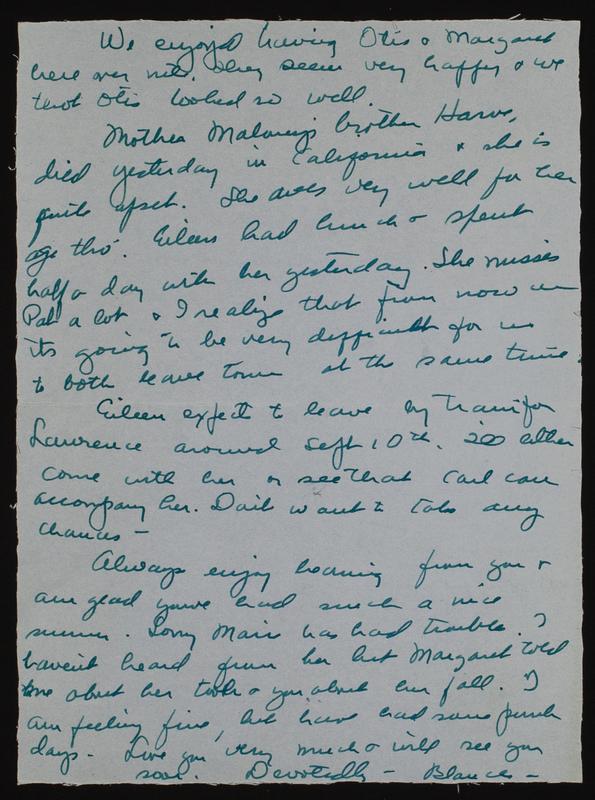 We enjoyed having Otis & Margaret
here over nite. They seem very happy & we
thot Otis looked so well.
Mother Maloney's brother Harve,
died yesterday in California & she is
quite upset. She does very well for her
age tho'. Eileen had lunch & spent
half a day with her yesterday. She misses
Pat a lot & I realize that from now on
its going to be very difficult for us
to both leave town at the same time.
Eileen expects to leave by train for
Lawrence around Sept 10th. I'll either
come with her or see that Carl can
accompany her. Don't want to take any
chances -
Always enjoy hearing from you &
am glad you've had such a nice
summer. Sorry Marie has had trouble. I
haven't heard from her but Margaret told
me about her tooth & you about her fall. I
am feeling fine, but have had some punk
days - Love you very much & will see you
soon. Devotedly - Blanche -